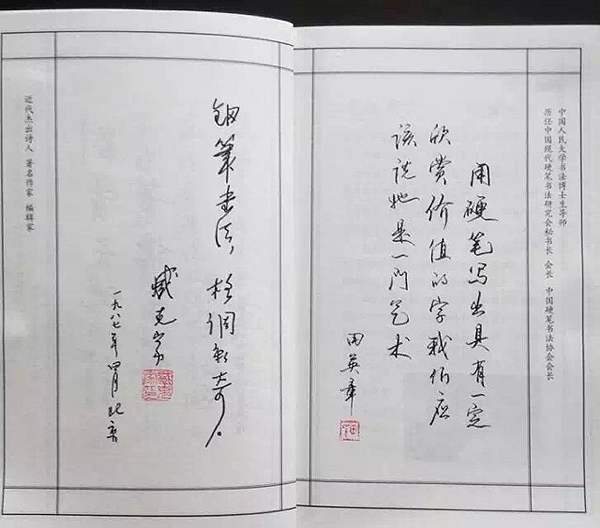 中国人民大学书法博士生导师
历任中国现代硬笔书法研究会秘书长 会长 中国硬笔书法协会会长
用硬笔写出具有一定
欣赏价值的字我们应
该说她是一门艺术
田英章
钢筆书法，格调新奇。
臧克家
一九八七年四月北京
近代杰出诗人 著名作家 编辑家